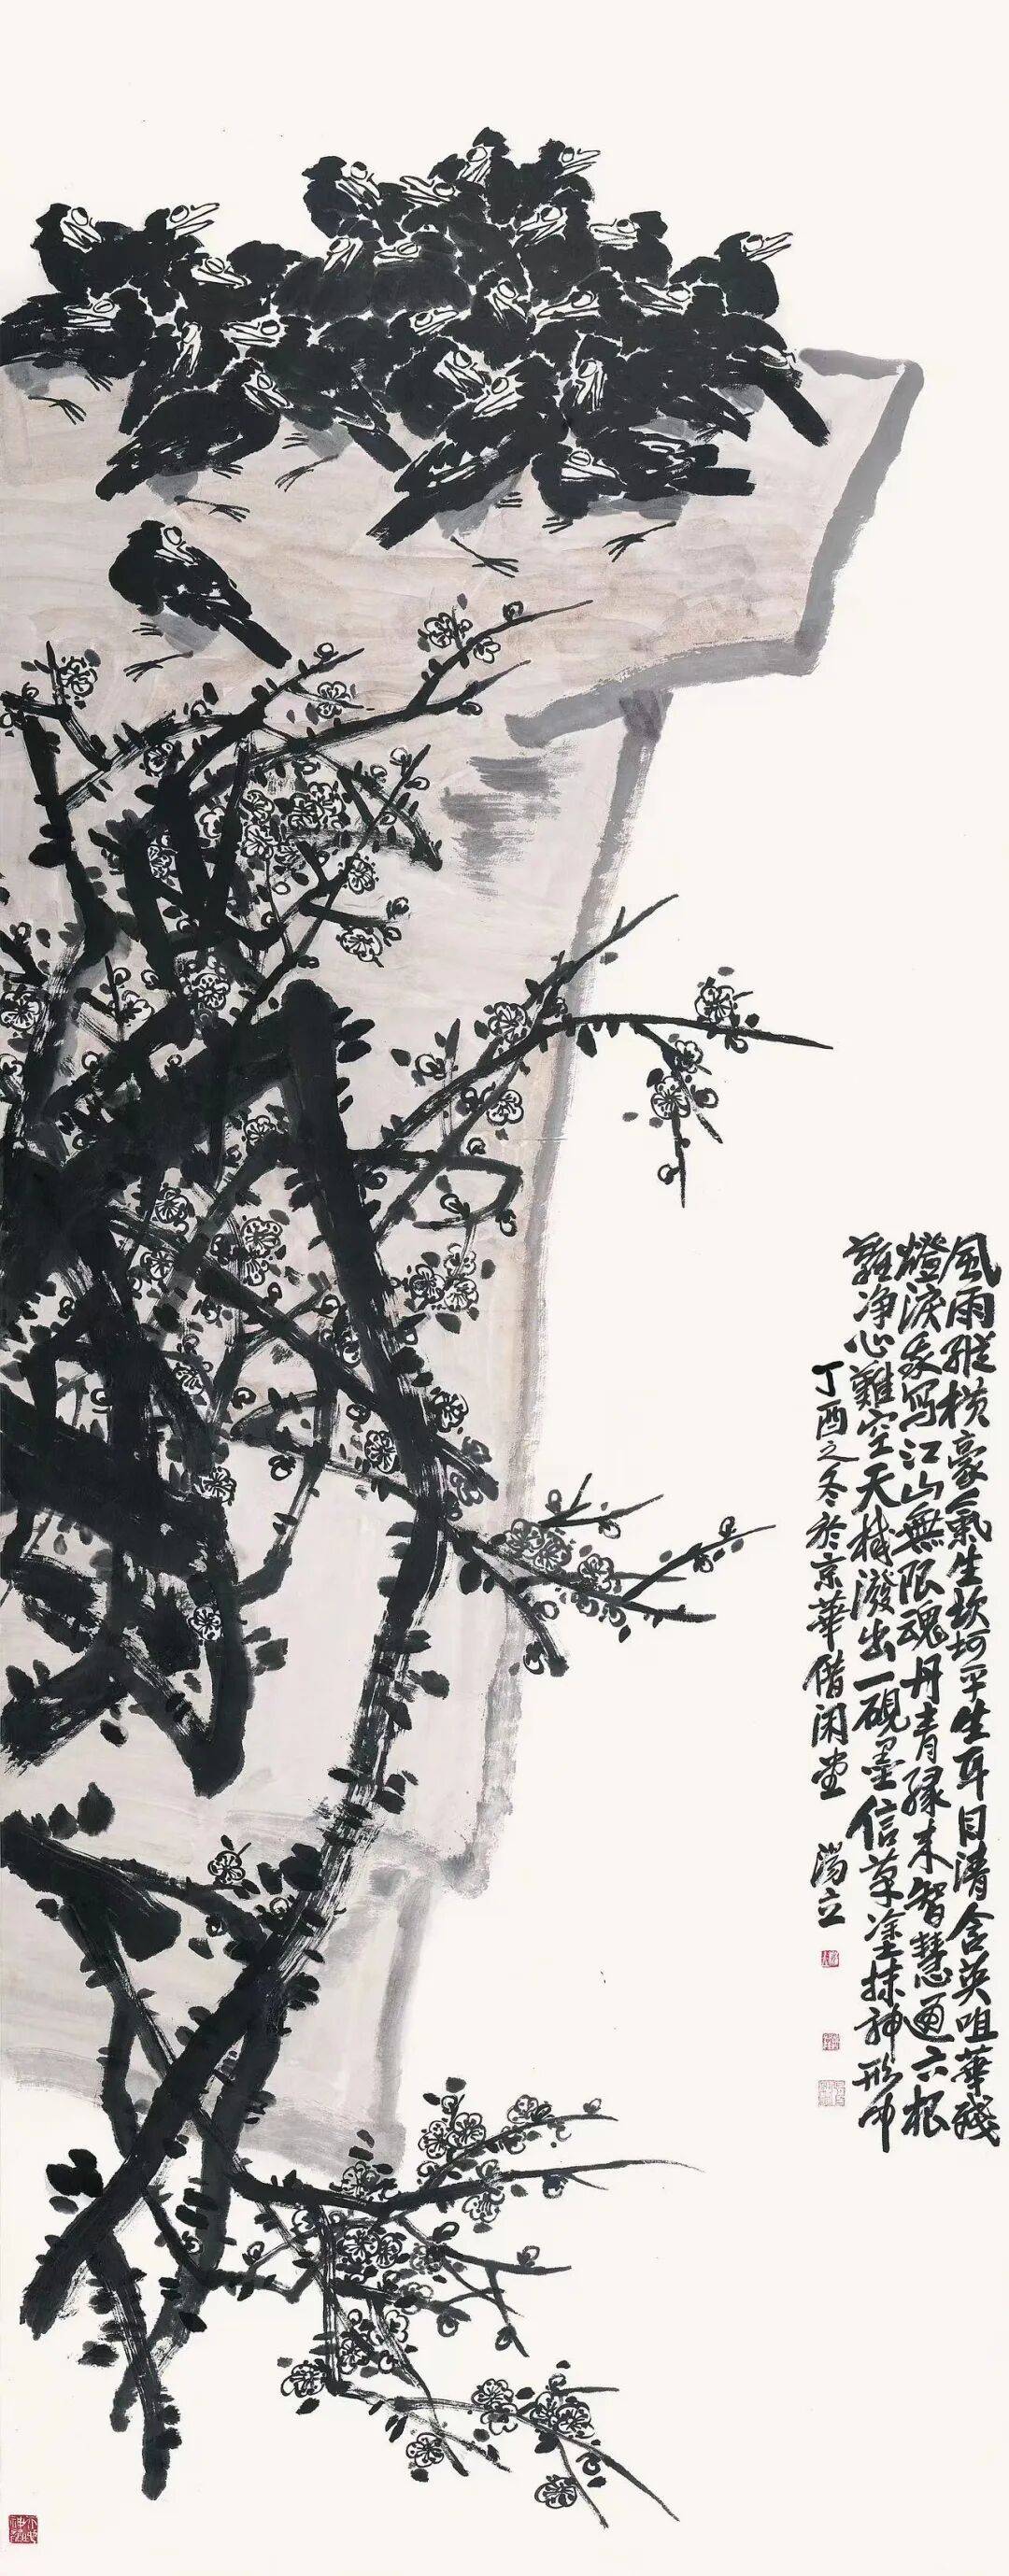 風雨縱橫豪氣生坎坷平生耳目清含英咀華殘
燈淚我寫江山無限魂丹青緣來智慧通六根
難净心難空天機潑出一硯墨信草塗抹神形中
丁酉之冬於京華偕閑堂 湯立